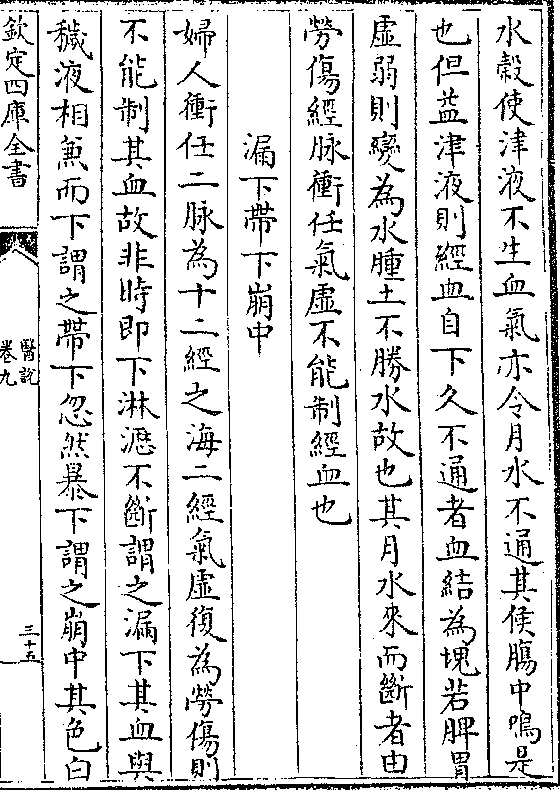 水穀使津液不生血氣亦令月水不通其候腸中鳴是
也但益津液則經血自下久不通者血結為塊若脾胃
虚弱則變為水腫土不勝水故也其月水來而斷者由
勞傷經脉衝任氣虚不能制經血也
漏下帶下崩中
婦人衝任二脉為十二經之海二經氣虚復為勞傷則
不能制其血故非時即下淋瀝不斷謂之漏下其血與
穢液相兼而下謂之帶下忽然暴下謂之崩中其色白
欽定四庫全書
醫説
卷九
三十五